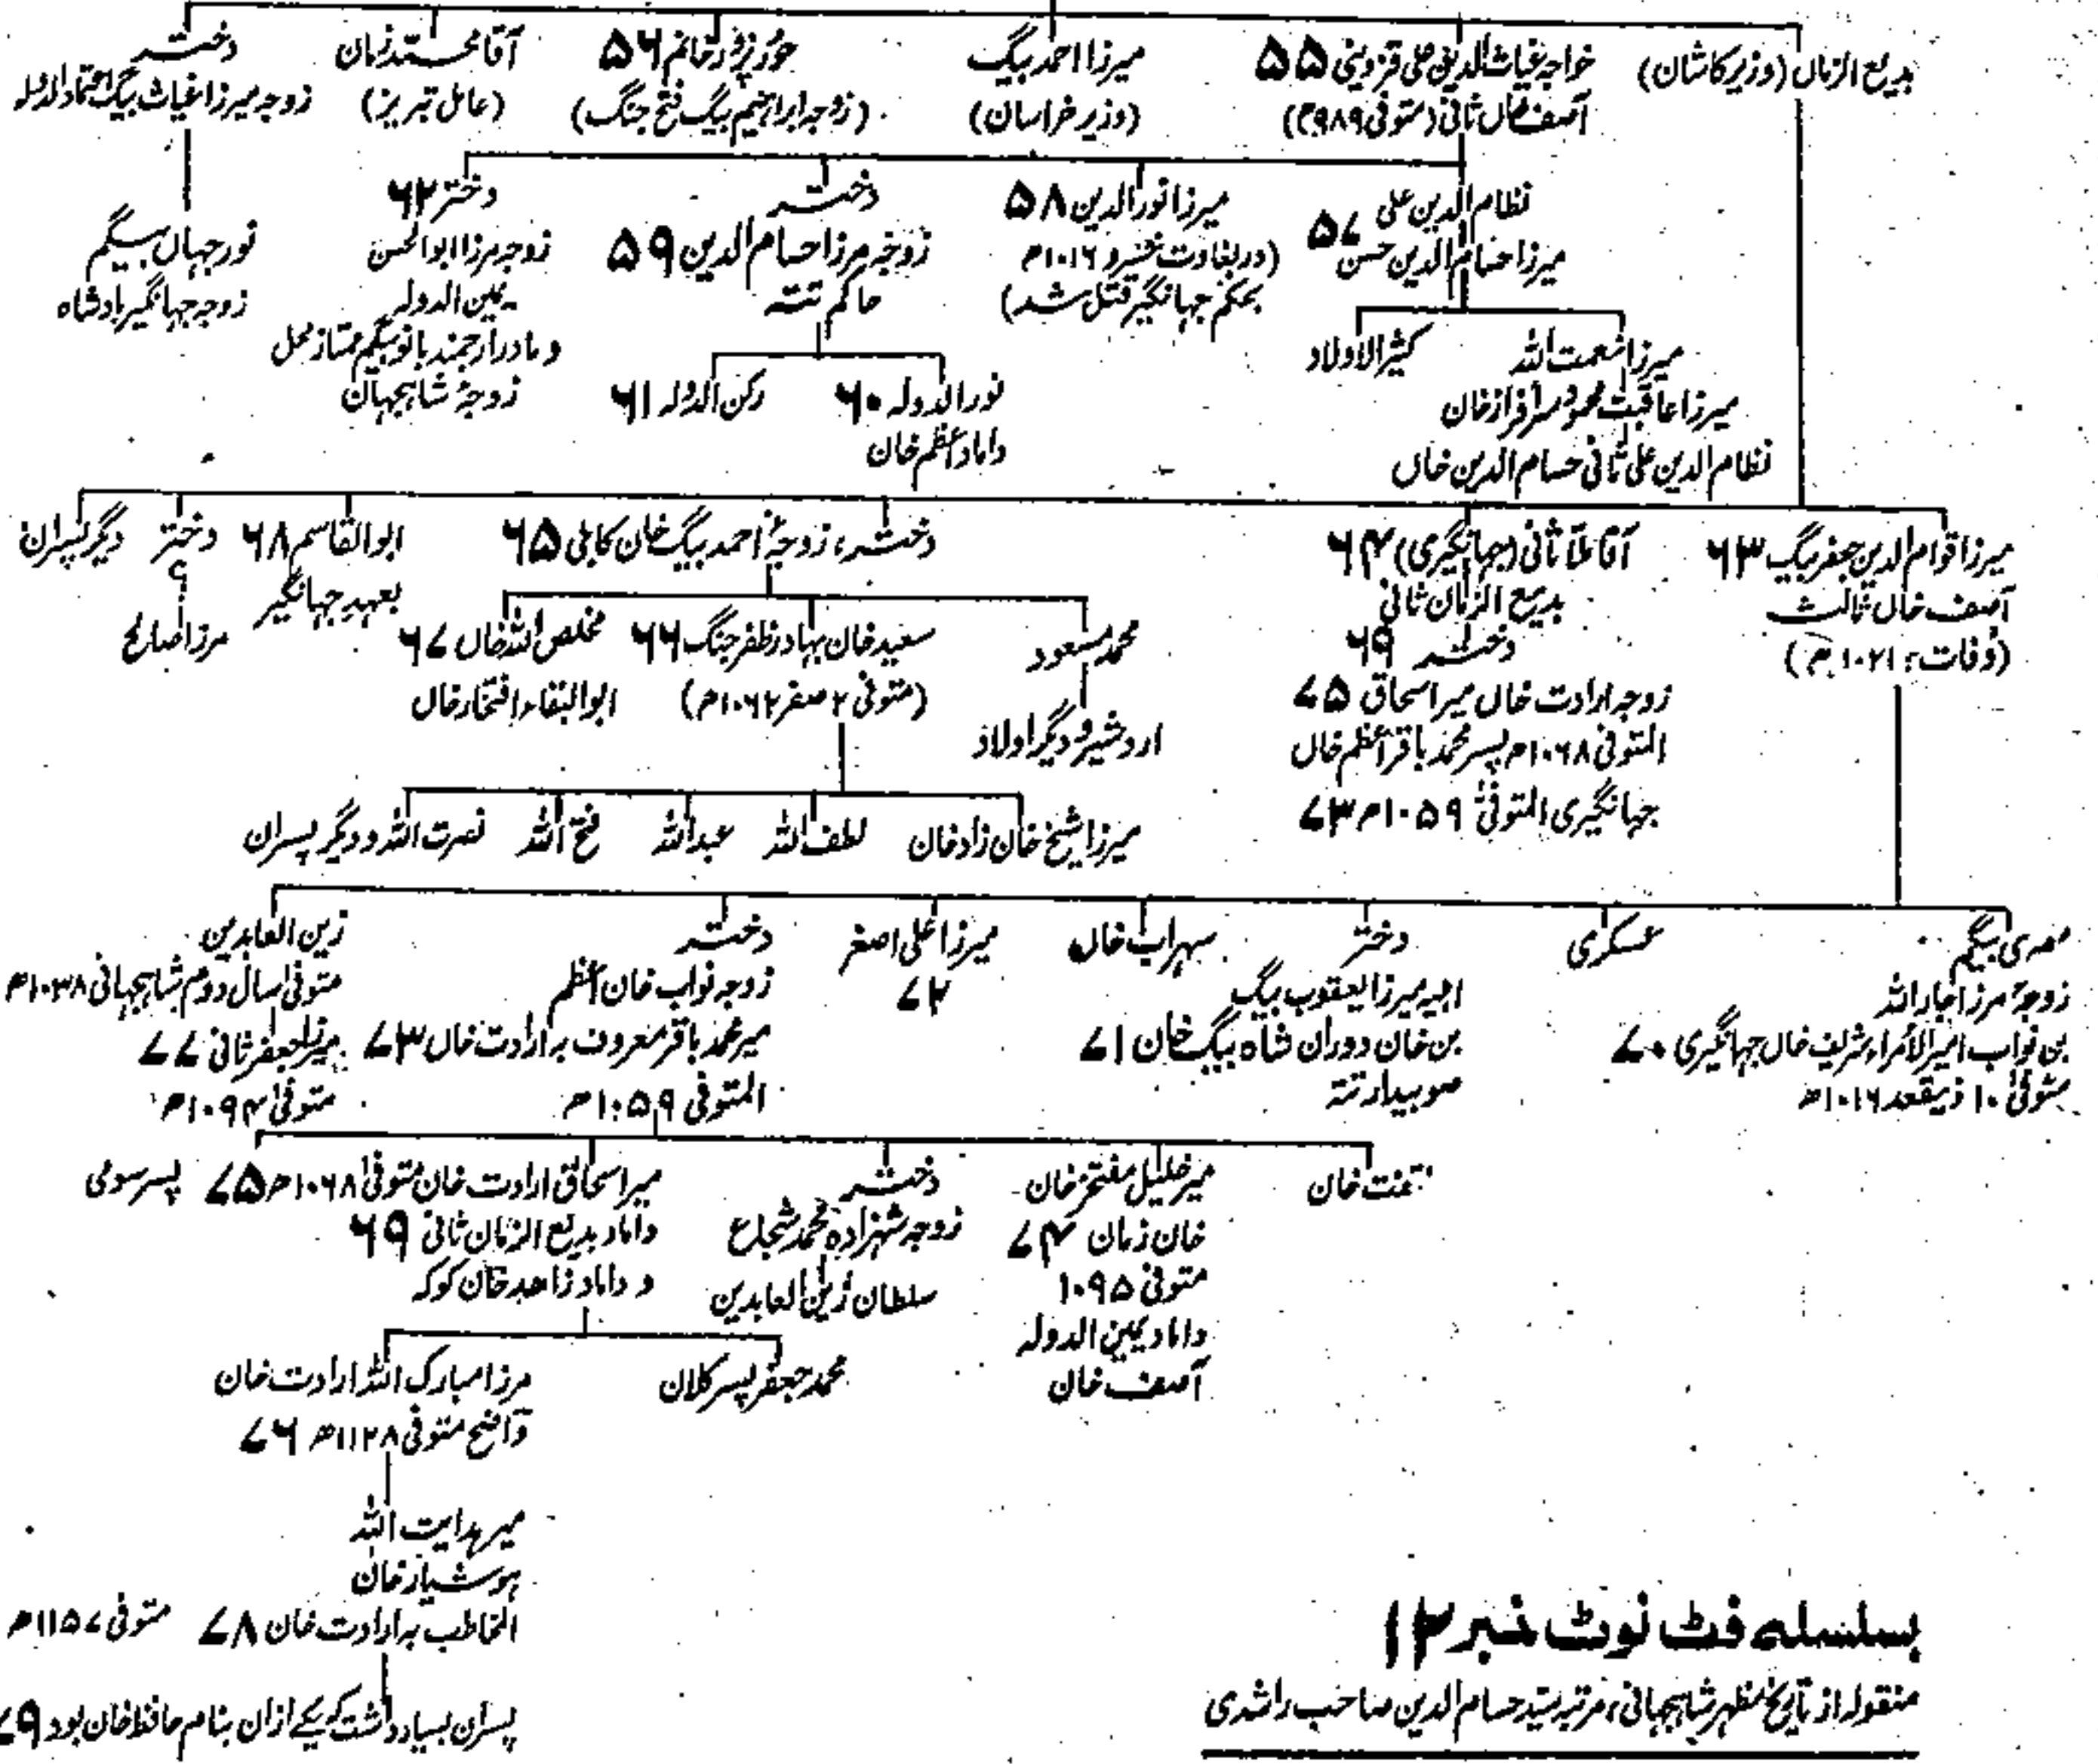 بدیع الزماں (وزیر کاشان)
خواجہ غیاث الدین علی قزوینی ۵۵
آصف خاں ثانی (متوفی ۹۸۹ھ)
میرزا احمد بیگ
(وزیر خراسان)
خانم ۵۶
(زوجہ ابراہیم بیگ فتح جنگ)
آقا محمد زمان
(عامل تبریز)
دختر
زوجہ میرزا غیاث بیگ اعتماد الدولہ
نور جہاں بیگم
زوجہ جہانگیر بادشاہ
نظام الدین علی
میرزا حسام الدین حسن ۵۷
میرزا نور الدین ۵۸
(در بغاوت خسرو ۱۰۱۶ھ
بحکم جہانگیر قتل شد)
دختر
زوجہ مرزا حسام الدین ۵۹
حاکم تتہ
دختر ۶۲
زوجہ مرزا ابوالحسن
یمین الدولہ
و مادر ارجمند بانو بیگم ممتاز محل
زوجۂ شاہجہان
میرزا نعمت اللہ
کثیر الاولاد
میرزا عاقبت محمود سرافراز خان
نظام الدین علی ثانی حسام الدین خاں
نور الدولہ ۶۰
داماد اعظم خان
رکن الدولہ ۶۱
میرزا قوام الدین جعفر بیگ ۶۳
آصف خاں ثالث
(وفات: ۱۰۲۱ھ)
آقا ملا ثانی (جہانگیری) ۶۴
بدیع الزمان ثانی
دختر ۶۹
زوجہ ارادت خاں میر اسحاق ۷۵
المتوفی ۱۰۶۸ھ پسر محمد باقر اعظم خاں
جہانگیری المتوفیٰ ۱۰۵۹ھ ۷۳
دختر، زوجۂ احمد بیگ خان کابلی ۶۵
ابوالقاسم ۶۸
بعہد جہانگیر
دختر
؟
مرزا صالح
دیگر پسران
محمد مسعود
اردشیر و دیگر اولاد
سعید خان بہادر ظفر جنگ ۶۶
(متوفی ۲ صفر ۱۰۶۲ھ)
مخلص اللہ خاں ۶۷
ابوالبقاء افتخار خاں
میرزا شیخ خان زاد خان
لطف اللہ
عبداللہ
فتح اللہ
نصرت اللہ و دیگر پسران
مصری بیگم
زوجۂ مرزا جار اللہ
بن نواب امیر الأمراء شریف خاں جہانگیری ۷۰
متوفیٰ ۱۰ ذیقعد ۱۰۱۶ھ
عسکری
دختر
اہلیہ میرزا یعقوب بیگ
بن خان دوران شاہ بیگ خان ۷۱
صوبیدار تتہ
سہراب خاں
میرزا علی اصغر
۷۲
دختر
زوجہ نواب خان اعظم
میر محمد باقر معروف بہ ارادت خاں ۷۳
المتوفی ۱۰۵۹ھ
زین العابدین
متوفی سال دوم شاہجہانی ۱۰۳۸ھ
میرزا جعفر ثانی ۷۷
متوفیٰ ۱۰۹۴ھ
خان
میر خلیل مفتخر خان
خان زمان ۷۴
متوفیٰ ۱۰۹۵
داماد یمین الدولہ
آصف خان
دختر
زوجہ شہزادہ محمد شجاع
سلطان زین العابدین
میر اسحاق ارادت خان متوفیٰ ۱۰۶۸ھ ۷۵
داماد بدیع الزمان ثانی ۶۹
و داماد زاہد خان کوکہ
پسر سومی
محمد جعفر پسر کلان
مرزا مبارک اللہ ارادت خان
واضح متوفیٰ ۱۱۲۸ھ ۷۶
میر ہدایت اللہ
ہوشیار خان
المخاطب بہ ارادت خان ۷۸ متوفی ۱۱۵۷ھ
پسران بسیار داشت کہ یکے ازان بنام حافظ خان بود ۷۹
بسلسلہ فٹ نوٹ نمبر ۱۲
منقولہ از تاریخ مظہر شاہجہانی، مرتبہ سید حسام الدین صاحب راشدی